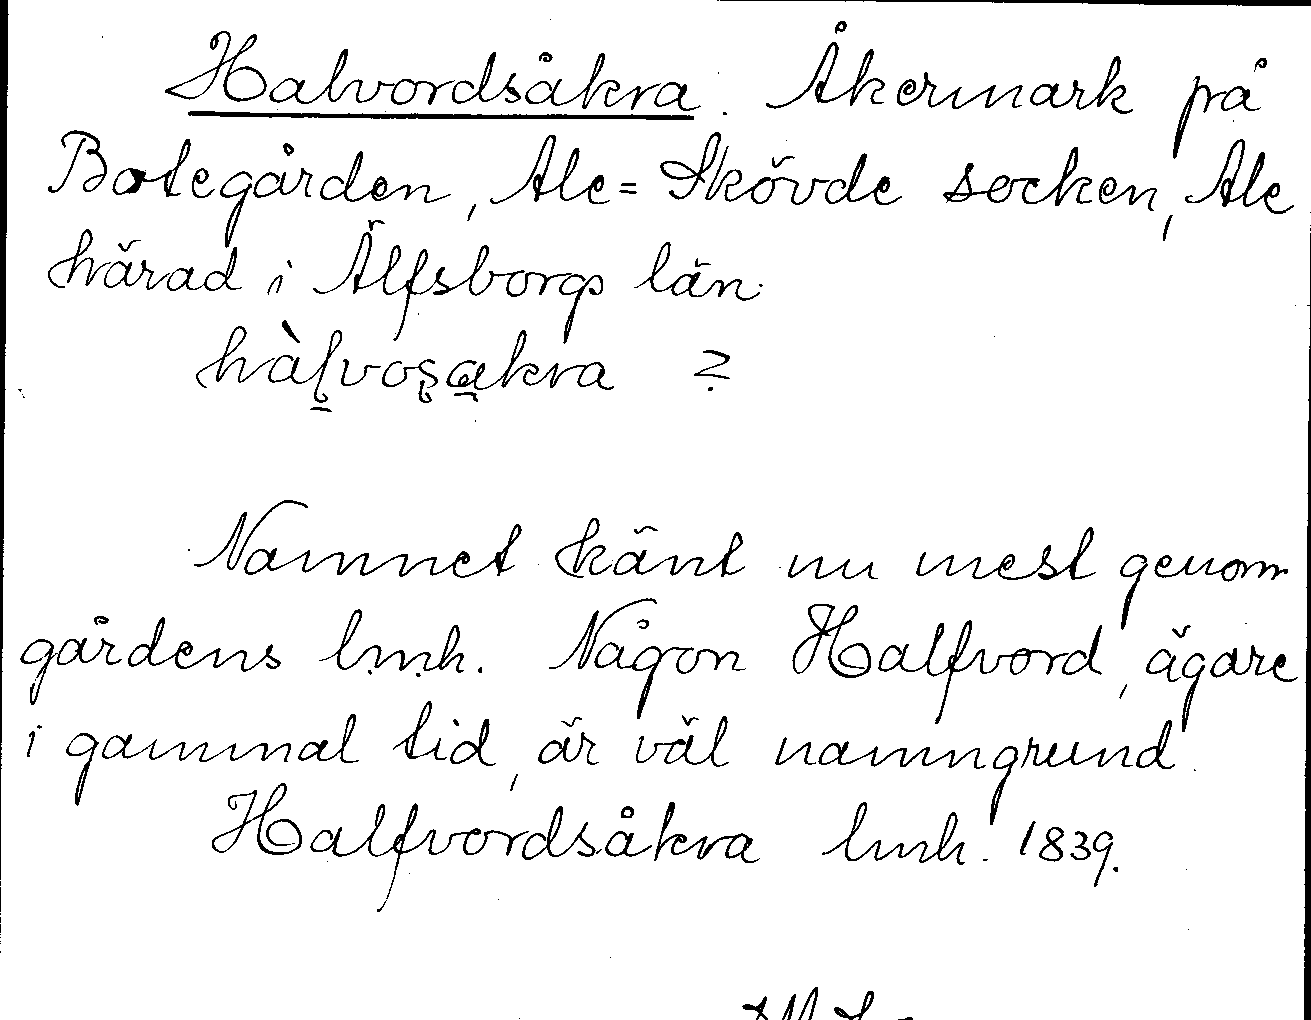 Halvordsåkra. Åkermark på
Botegården, Ale=Skövde socken, Ale
härad i Älfsborgs län.
hàl̠voʂa̠kra ?
Namnet känt nu mest genom
gårdens lmh. Någon Halfvord, ägare
i gammal tid, är väl namngrund.
Halfvordsåkra lmh. 1839.